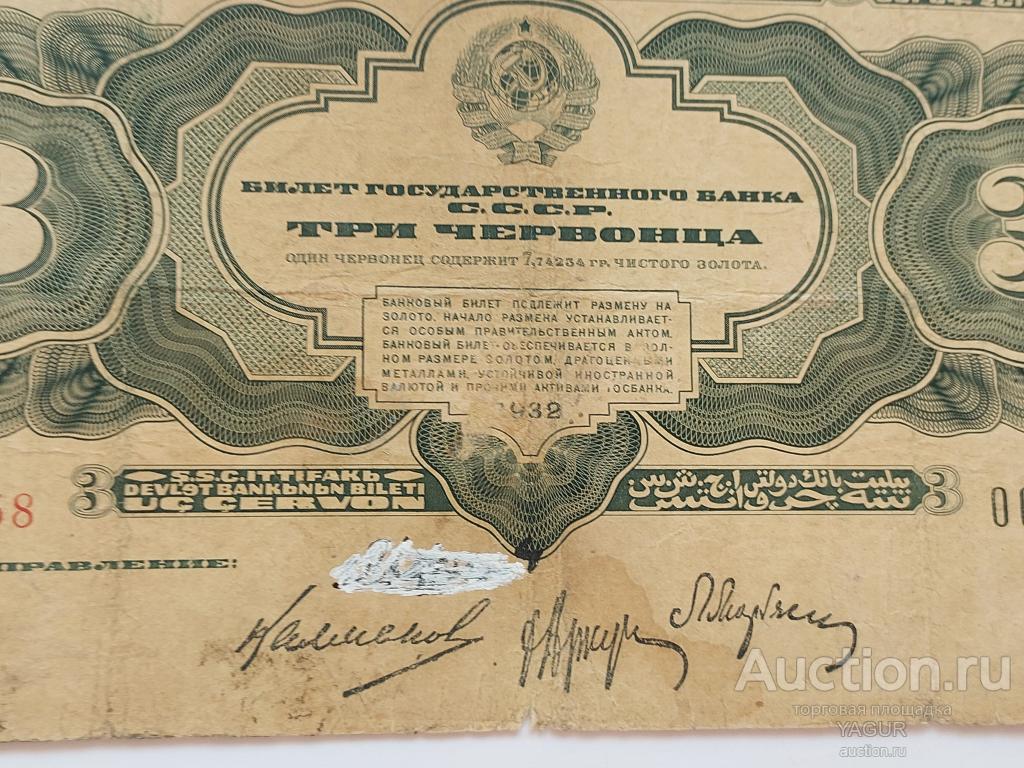 3
3
БИЛЕТ ГОСУДАРСТВЕННОГО БАНКА
С.С.С.Р.
ТРИ ЧЕРВОНЦА
ОДИН ЧЕРВОНЕЦ СОДЕРЖИТ 7,74234 ГР. ЧИСТОГО ЗОЛОТА.
БАНКОВЫЙ БИЛЕТ ПОДЛЕЖИТ РАЗМЕНУ НА
ЗОЛОТО. НАЧАЛО РАЗМЕНА УСТАНАВЛИВАЕТ-
СЯ ОСОБЫМ ПРАВИТЕЛЬСТВЕННЫМ АКТОМ.
БАНКОВЫЙ БИЛЕТ ОБЕСПЕЧИВАЕТСЯ В ПОЛ-
НОМ РАЗМЕРЕ ЗОЛОТОМ, ДРАГОЦЕННЫМИ
МЕТАЛЛАМИ, УСТОЙЧИВОЙ ИНОСТРАННОЙ
ВАЛЮТОЙ И ПРОЧИМИ АКТИВАМИ ГОСБАНКА.
1932
3 S.S.C.ITTIFAKЬ
DEVLƏT BANKЬNЬN BILETI
UC CERVON
3
58
ПРАВЛЕНИЕ:
Калманов
Auction.ru
торговая площадка
YAGUR
auction.ru